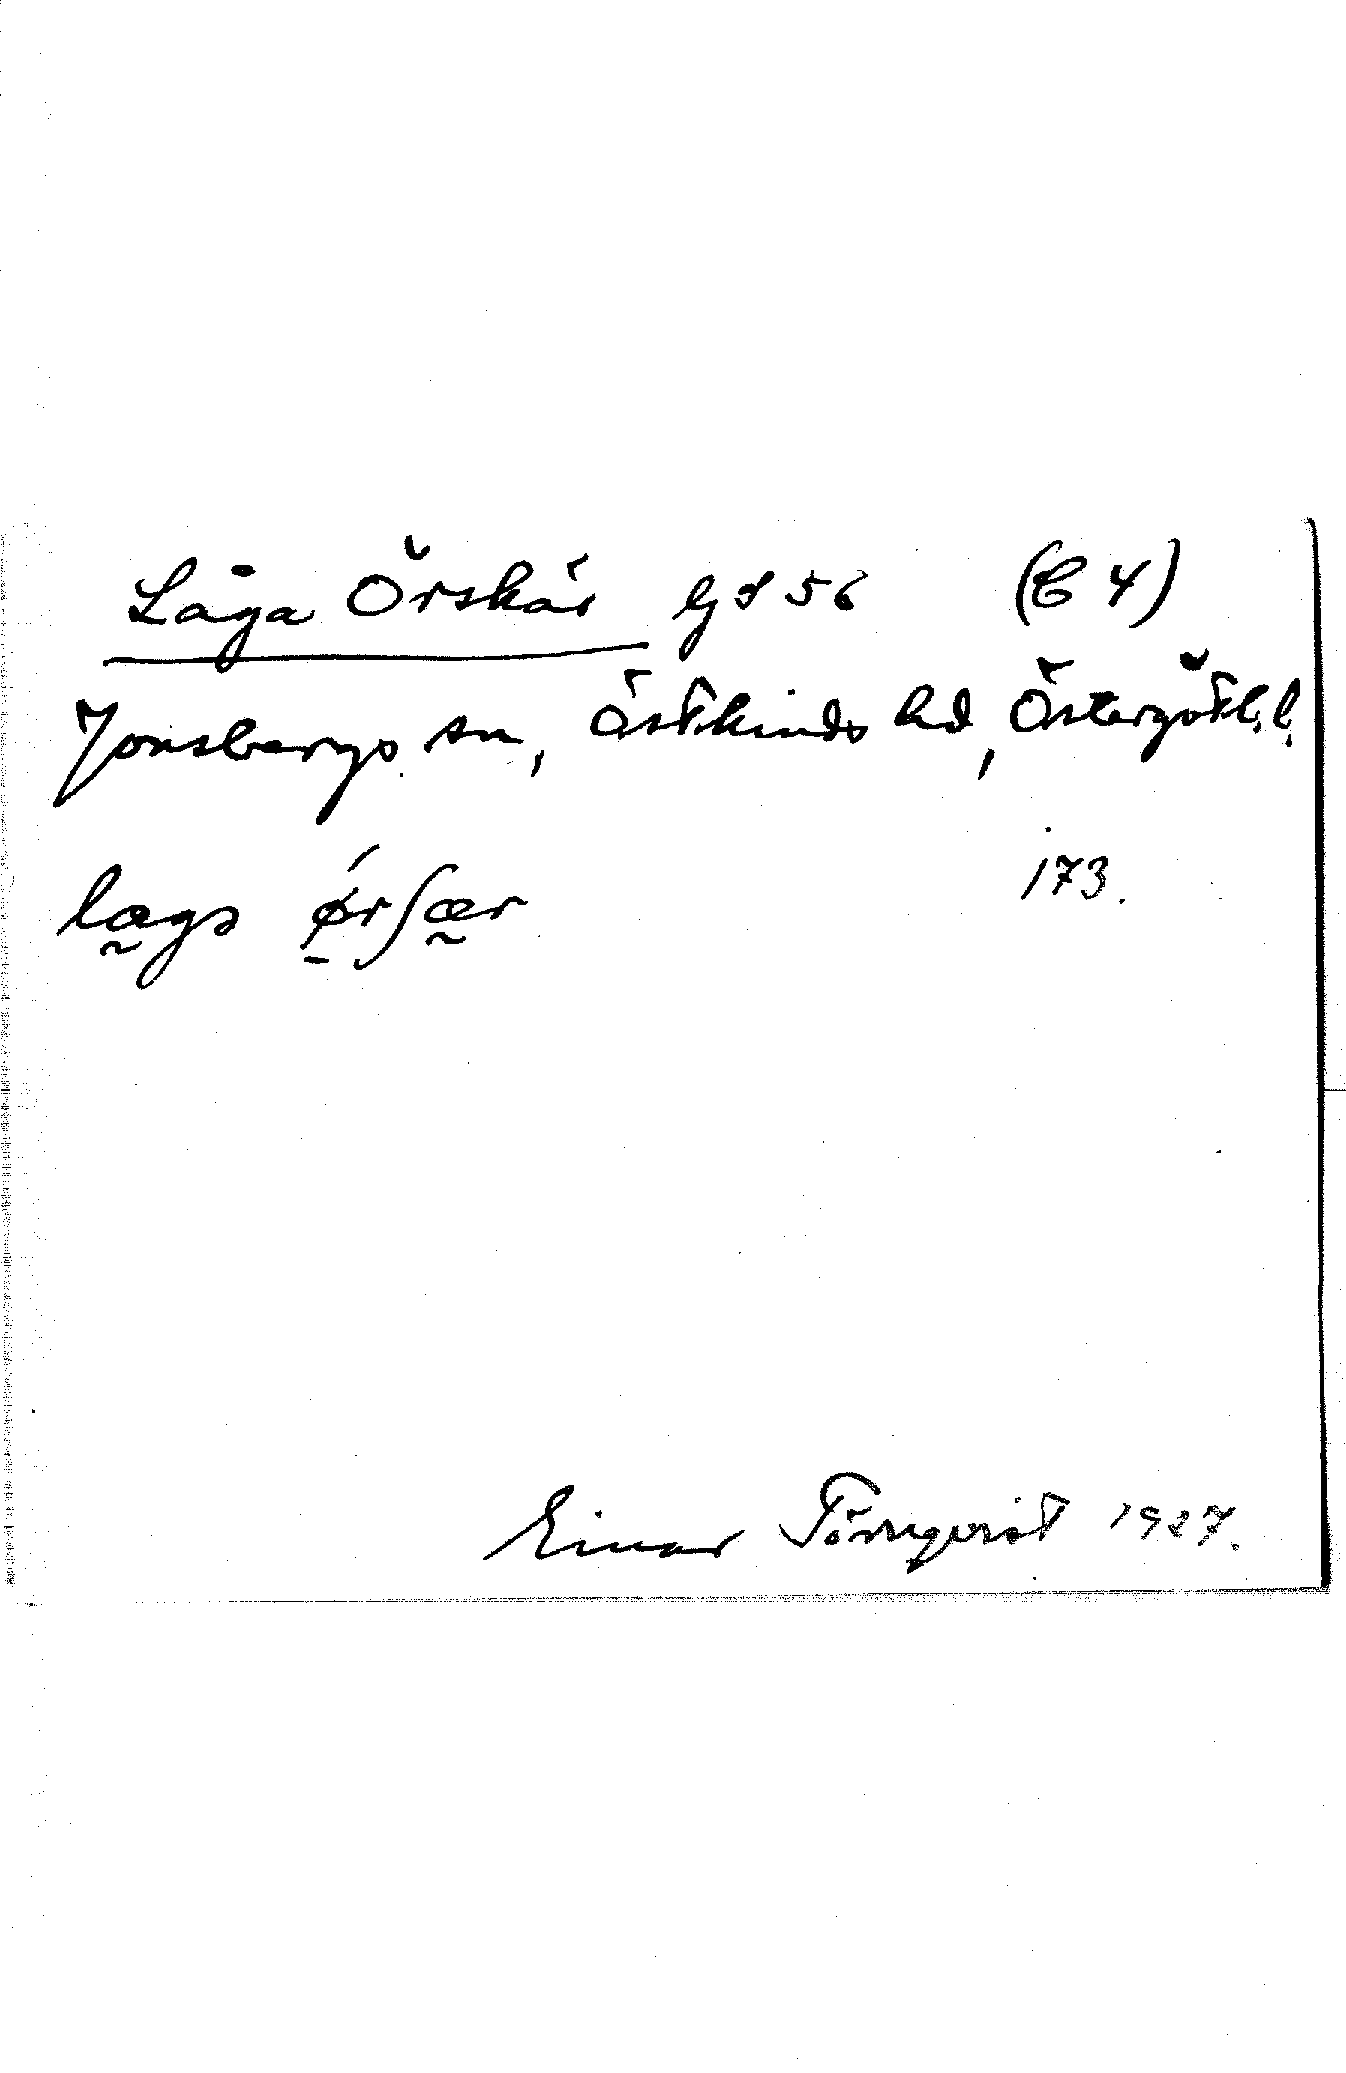 Låga Örskär Gs 56 (C 4)
Jonsbergs sn, Östkinds hd, Östergötl. l.
173.
Einar Törnqvist 1927.